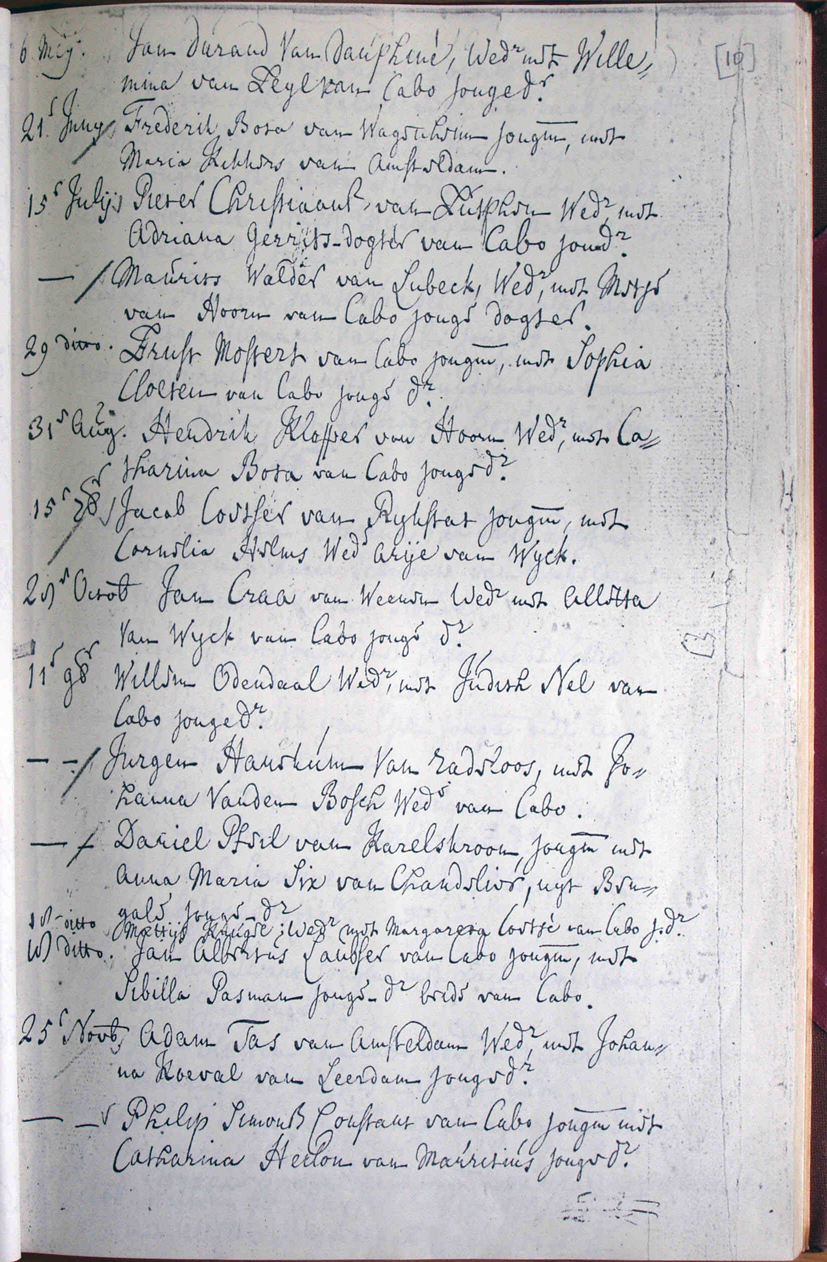 [10]
6 Meij. Jan Durand Van Dauphiné, Wedr met Wille„
mina van Zeyl van Cabo jonge dr.
21s Junij Frederik Bota van Wagenheim jongm, met
Maria Kikkers van Amsteldam.
15s Julijs Pieter Christiaans van Zutphen Wedr, met
Adriana Gerrits-dogter van Cabo jonedr.
— / Maurits Walder van Lubeck, Wedr, met Metje
van Hoorn van Cabo jonge dogter.
29 ditto. Ernst Mostert van Cabo jongm, met Sophia
Cloeten van Cabo jonge dr.
31s Aug. Hendrik Klopper van Hoorn Wedr, met Ca„
tharina Bota van Cabo jongedr.
15s 7br / Jacob Coetser van jongm, met
Cornelia Helms Wede Arije van Wyck.
Octob Jan Craa van Weenen Wedr met Aletta
Van Wyck van Cabo jonge dr.
11s 9br Willem Odendaal Wedr, met Judith Nel van
Cabo jonge dr.
— - / Jurgen Hanekum Van Radeloos, met Jo„
hanna Vanden Bosch Wede van Cabo.
— / Daniel Pfeil van Karelskroon, jongm met
Anna Maria Six van Chandelior, uyt Ben„
gale jonge dr
ditto Mattijs Krugel; Wedr met Margareta Coetse van Cabo j.dr.
ditto. Jan Albertus Laubser van Cabo jongm, met
Sibilla Pasman jonge-dr beide van Cabo.
25s Novb, Adam Tas van Amsteldam Wedr, met Johan„
na Koeval van Leerdam jongedr.
— — Philip Simons Constant van Cabo jongm met
Catharina Heelon van Mauritius jongedr.